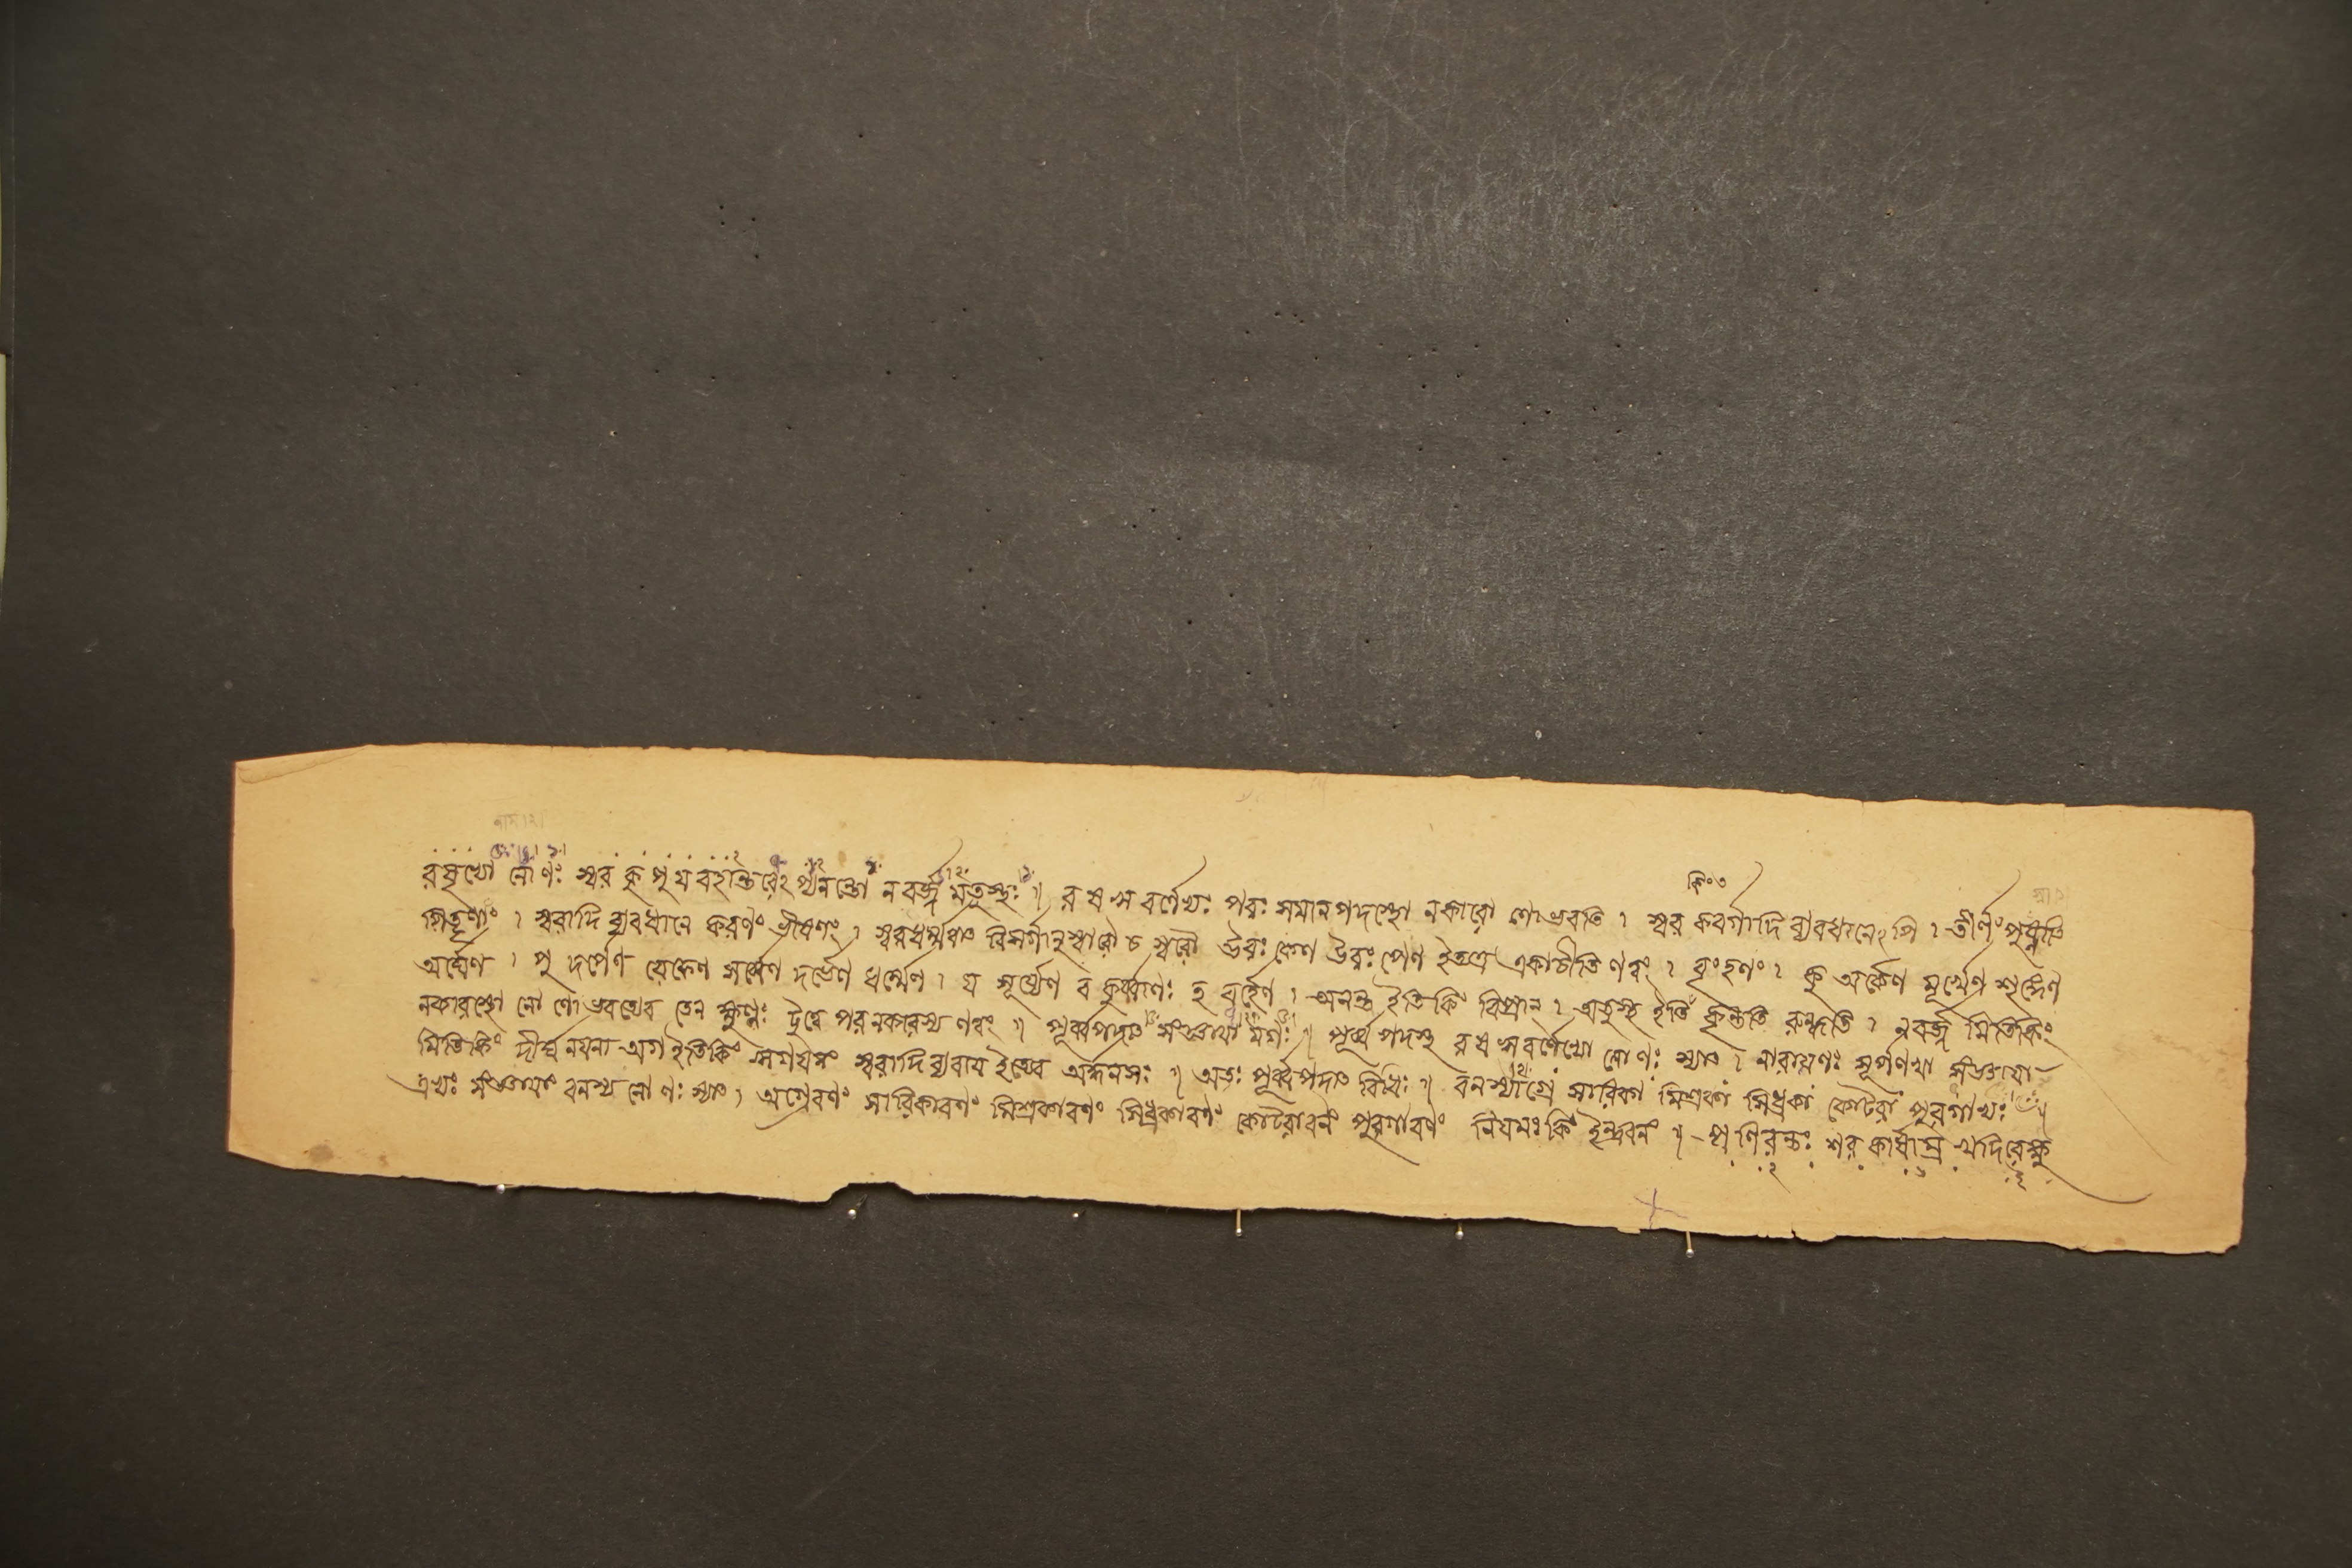 রষৃভ্যো নো ণঃ স্বর কু পু য ব হান্তরেঽপ্যনন্ত্যো নবর্জ্জমতুস্থঃ ॥ র ষ ঋ বর্ণেভ্যঃ পরঃ সমানপদস্থো নকারো ণো ভবতি । স্বর কবর্গাদি ব্যবধানেঽপি । তীর্ণং পুষ্ণাতি
পিতৃণাং । স্বরাদি ব্যবধানে করণং ভীষণং । বিসর্গানুস্বারৌ চ স্বরৌ উরঃ কেণ উরঃ পেণ ইত্যত্র ণত্বং । বৃংহণং । কু অর্কেণ মূর্খেণ শৃঙ্গেণ
অর্ঘেণ । পু দর্পেণ রেফেণ দর্ভেণ ধর্ম্মেণ । য সূর্য্যেণ ব কুর্ব্বাণঃ হ বর্হেণ । অনন্ত্য ইতি কিং বিপ্রান্ । অতুস্থ ইতি কৃন্ততি রুন্ধতি । নবর্জ্জ মিতি কিং
নকারস্থো নো ণো ভবত্যেব তেন ক্ষুণ্ণঃ দ্বিত্বে পরনকারস্য ণত্বং ॥ পূর্ব্বপদাৎ সংজ্ঞায়া মগঃ ॥ পূর্ব্ব পদস্থ র ষ ঋবর্ণেভ্যো নো ণঃ স্যাৎ । নারায়ণঃ সূর্পণখা সংজ্ঞায়া
মিতি কিং দীর্ঘনয়না অগ ইতি কিং ঋগয়নং স্বরাদি ব্যবায় ইত্যেব ॥ অতঃ পূর্ব্বপদাৎ বিধিঃ ॥ বনস্যাগ্রে সারিকা মিশ্রকা সিধ্রকা কোটরা পুরগাভ্যঃ ॥
এভ্যঃ সংজ্ঞায়াং বনস্য নো ণঃ স্যাৎ । অগ্রেবণং সারিকাবণং মিশ্রকাবণং সিধ্রকাবণং কোটরাবণং পুরগাবণং নিয়মঃ কিং ইন্দ্রবনং ॥ প্র নিরন্তঃ শর কার্ষ্যাম্র খদিরেক্ষু